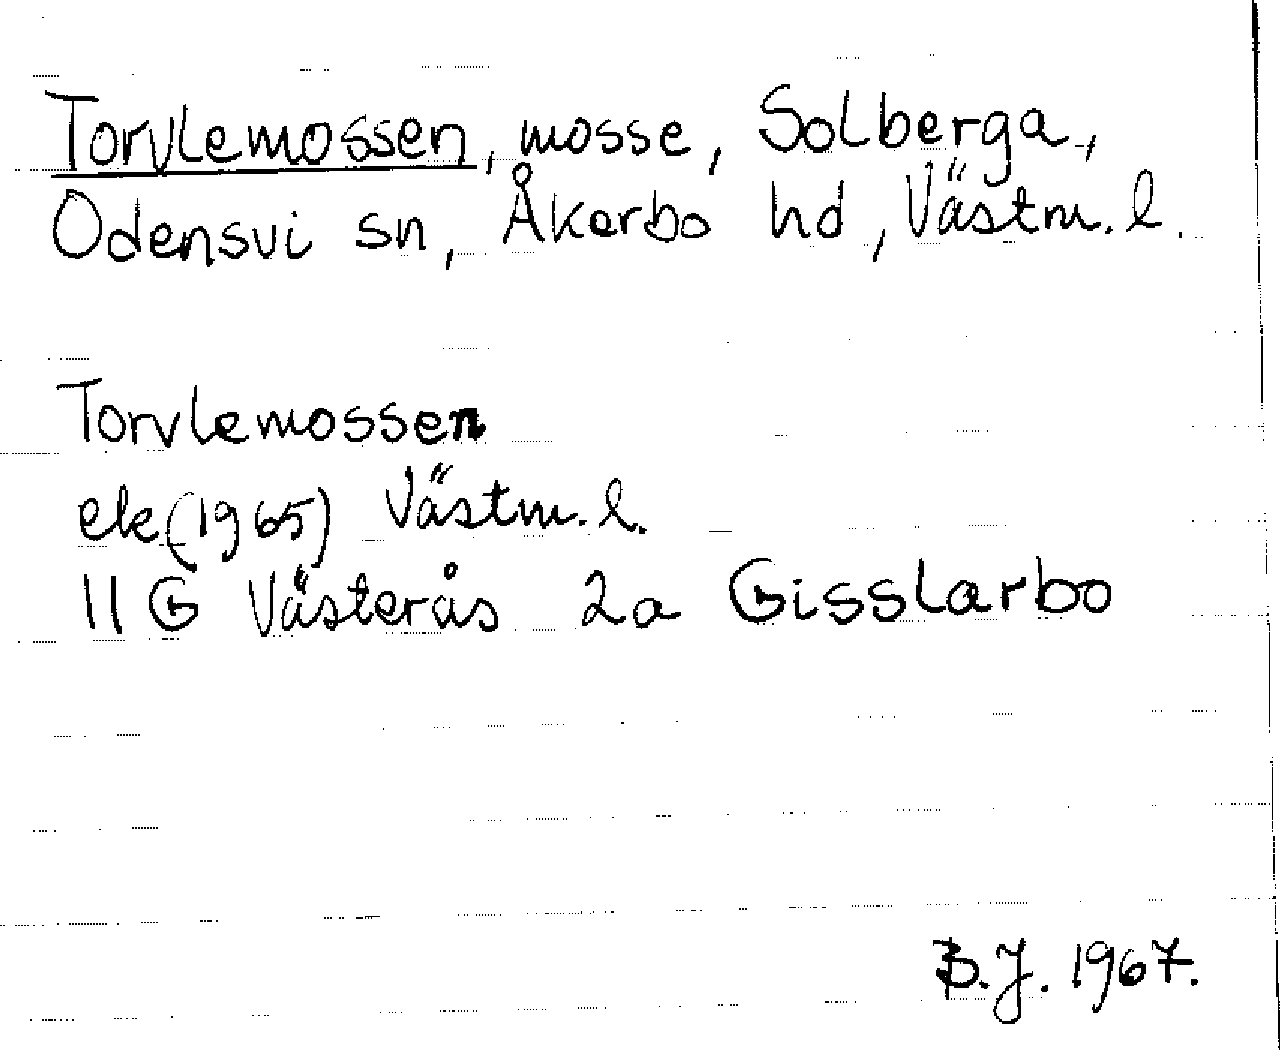 Torvlemossen, mosse, Solberga,
Odensvi sn, Åkerbo hd, Västm. l.
Torvlemossen
ek (1965) Västm. l.
11 G Västerås 2a Gisslarbo
B.J. 1967.